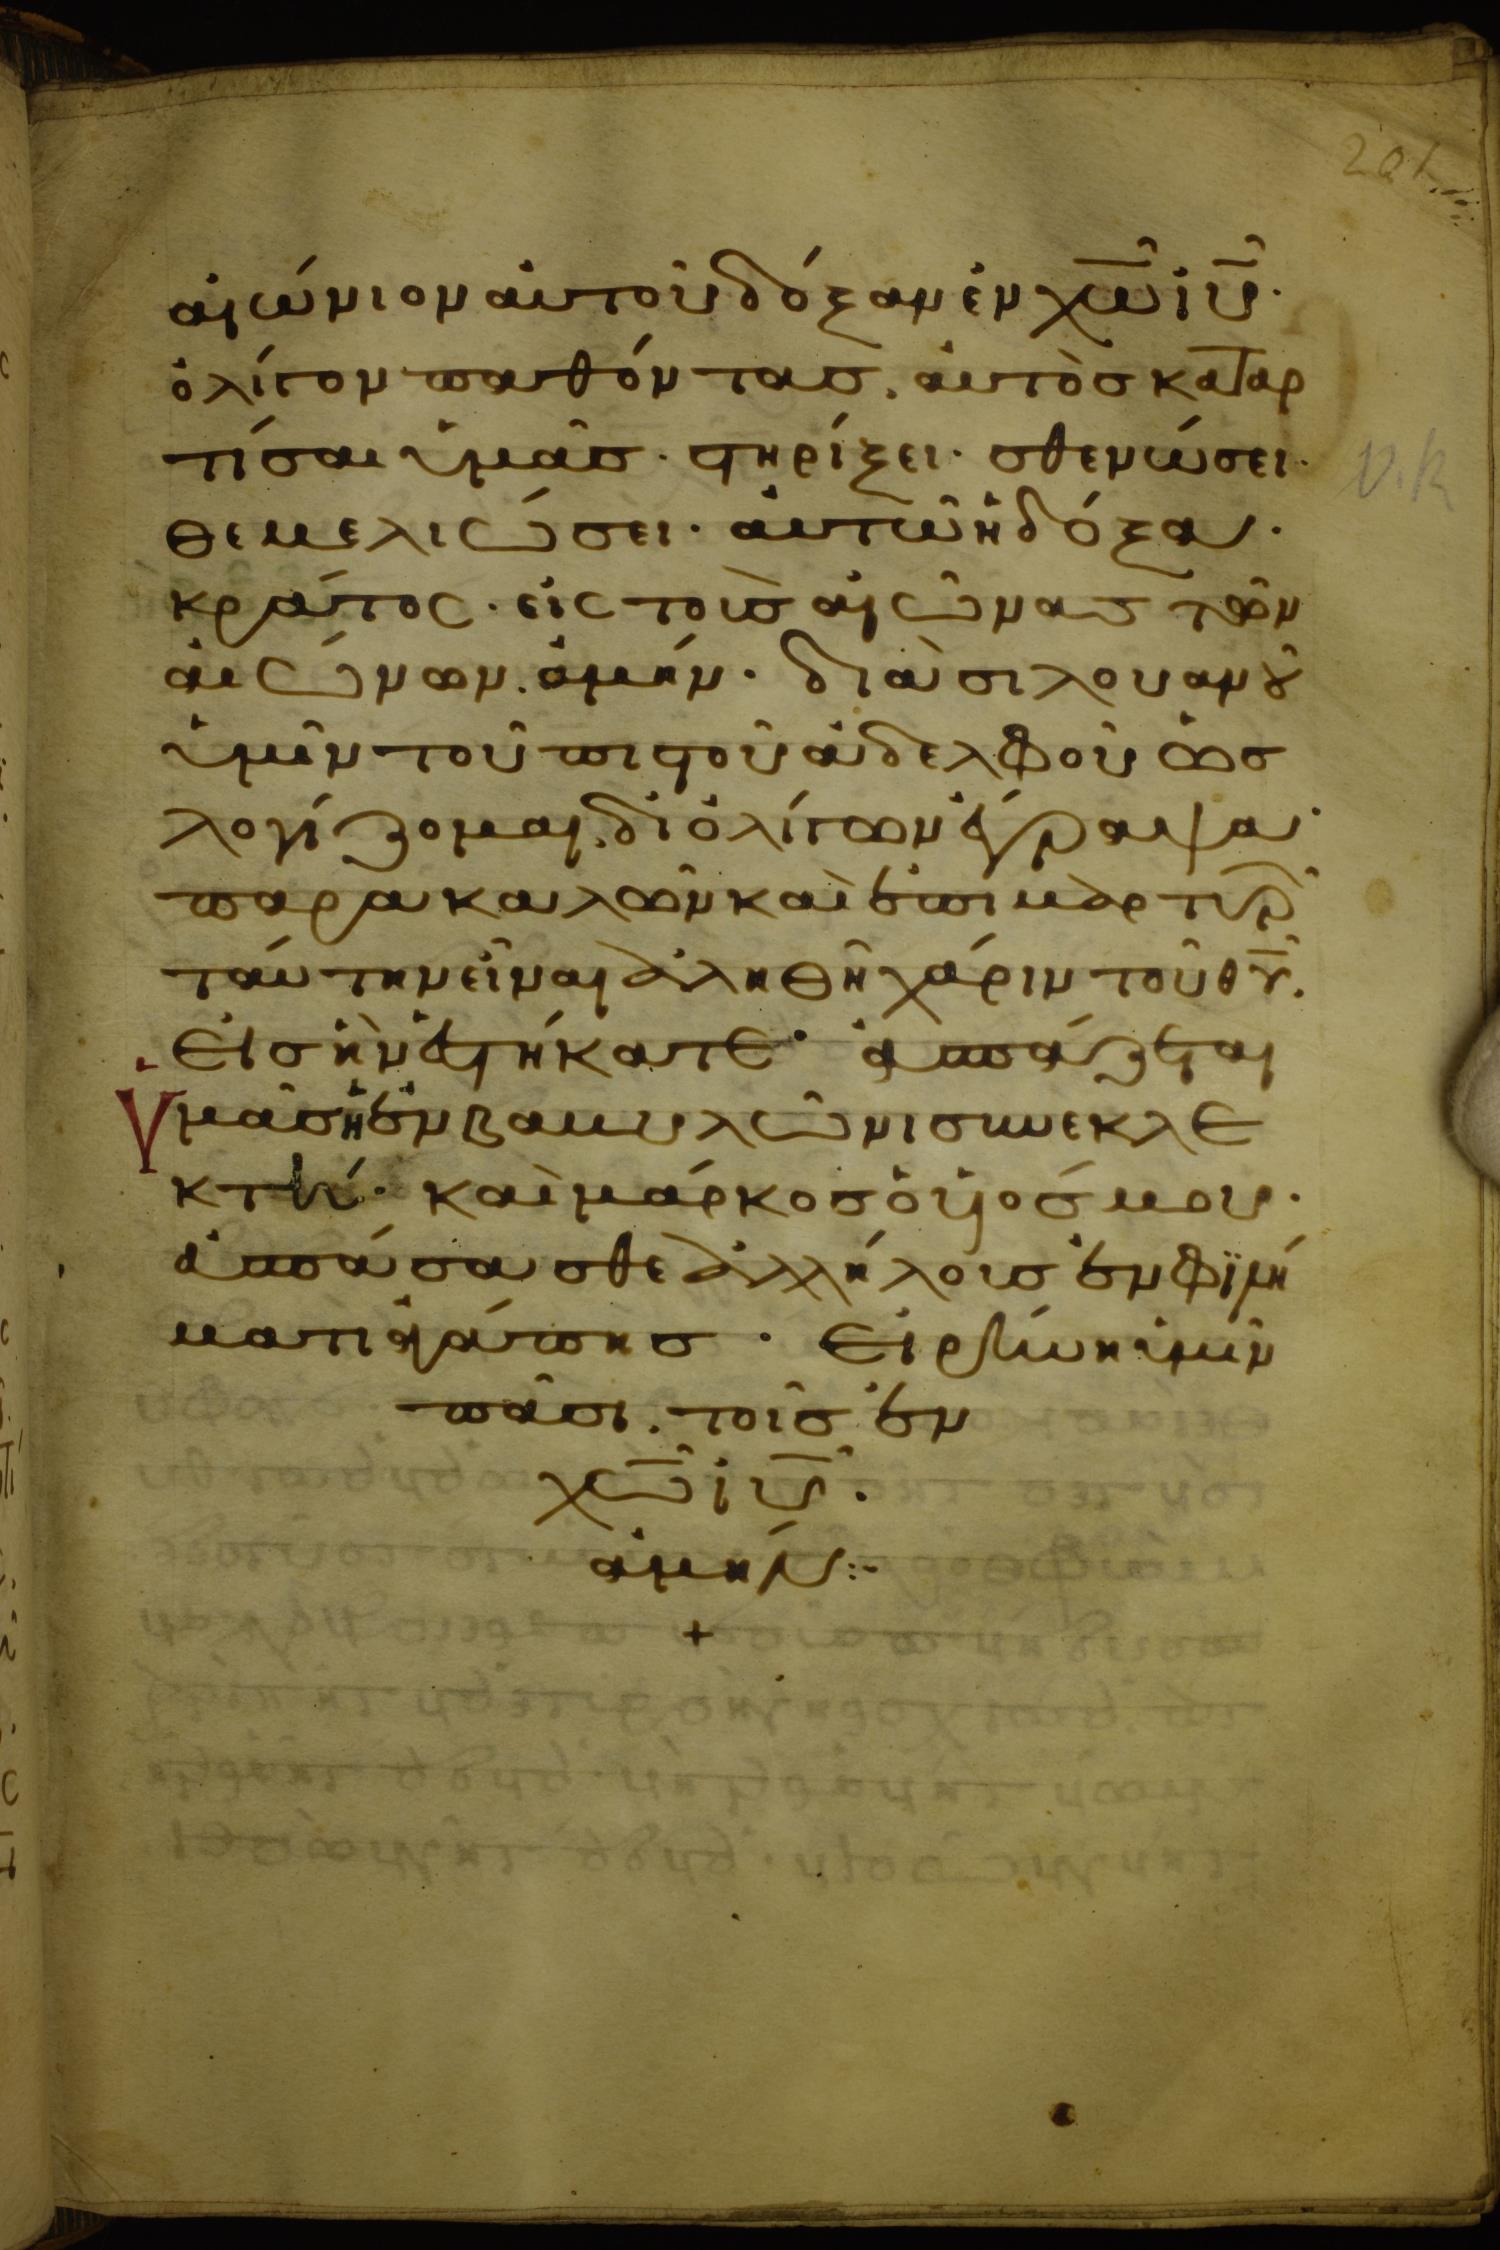 201
αἰώνιον αὐτοῦ δόξαν ἐν χω ιυ·
ὀλίγον παθόντας. αὐτὸς καταρ
τίσαι ὑμᾶς· στηρίξει· σθενώσει·
θεμελιώσει· αὐτῶ ἡ δόξα·
κράτος· εἰς τοὺς αἰῶνας τῶν
αἰώνων. ἀμήν· διὰ σιλουανοῦ
ὑμῖν τοῦ πιστοῦ ἀδελφοῦ ὡς
λογίζομαι. δι ὀλίγων ἔγραψα·
παρακαλῶν καὶ ἐπιμαρτυρ
ταύτην εἶναι ἀληθῆ χάριν τοῦ θυ.
εἰς ἣν ἑστήκατε· ἀσπάζεται
ὑμᾶς ἡ ἐν βαβυλῶνι συνεκλε
κτή· καὶ μάρκος ὁ υἱός μου·
ἀσπάσασθε ἀλλήλους ἐν φιλή
ματι ἀγάπης· εἰρήνη ὑμῖν
πᾶσι. τοῖς ἐν
χω ιυ·
ἀμήν:-
+